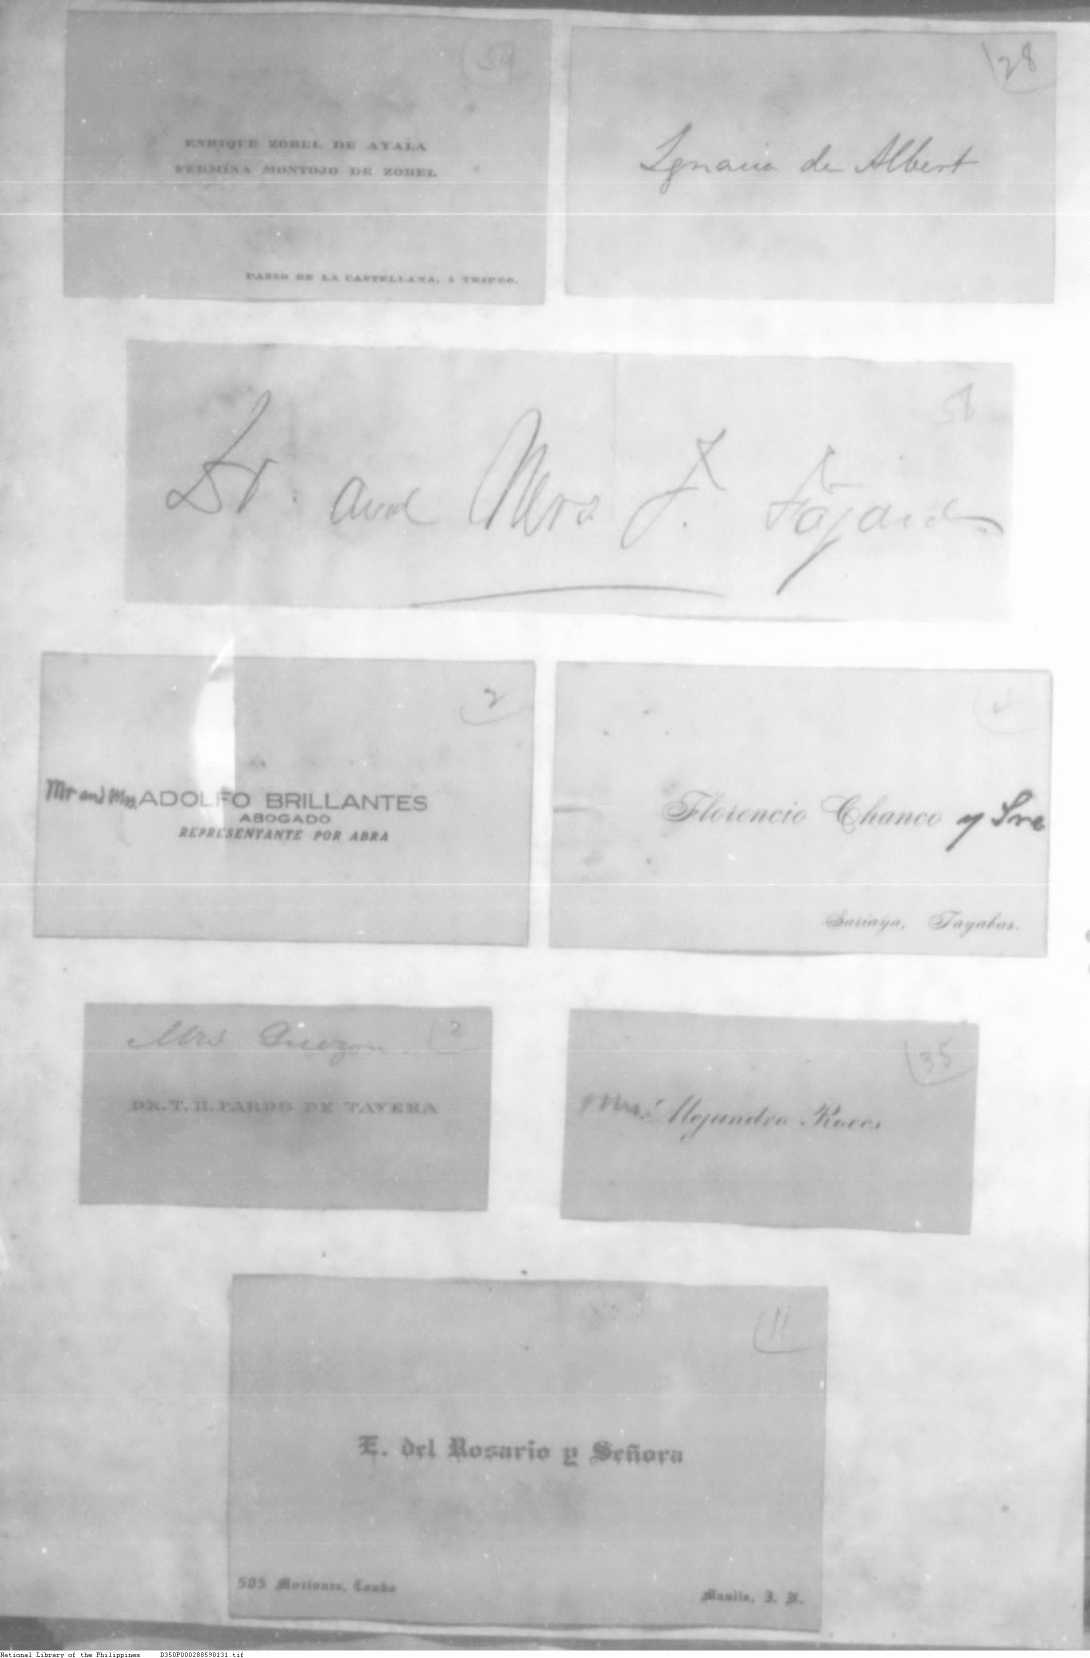 59
ENRIQUE ZOBEL DE AYALA
FERMINA MONTOJO DE ZOBEL
PASEO DE LA CASTELLANA, 5 TRIPDO.
28
Ignacia de Albert
58
Dr. and Mrs J. Fajardo
2
Mr and Mrs. ADOLFO BRILLANTES
ABOGADO
REPRESENTANTE POR ABRA
Florencio Chanco y Sra
Sariaya, Tayabas.
2
Mrs Quezon
DR. T. H. PARDO DE TAVERA
35
Mrs. Alejandro Roces
11
E. del Rosario y Señora
505 Moriones, Tondo
Manila, I. F.
National Library of the Philippines D350P000288598131.tif